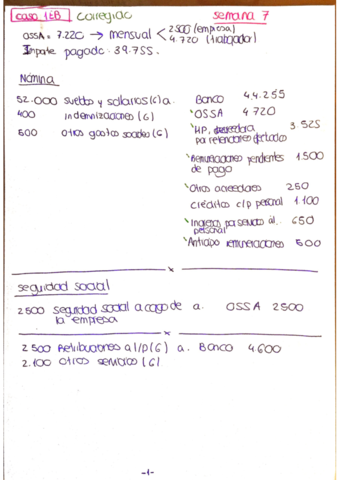 caso 1&B corregido semana 7
OSSA = 7.220 → mensual < 2500 (empresa)
4.720 (trabajador)
Importe pagado: 39.755.
Nómina
52.000 sueldos y salarios (G) a. Banco 44.255
400 indemnizaciones (G) OSSA 4720
600 otros gastos sociales (G) HP, acreedora 3.525
por retenciones practicadas
Remuneraciones pendientes 1.500
de pago
Otros acreedores 250
créditos c/p personal 1100
Ingresos por servicios al. 650
personal
Anticipo remuneraciones 500
x
Seguridad social
2500 seguridad social a cargo de a. OSSA 2500
la empresa
x
2.500 Retribuciones a l/p (G) a. Banco 4600
2.100 otros servicios (G)
-1-